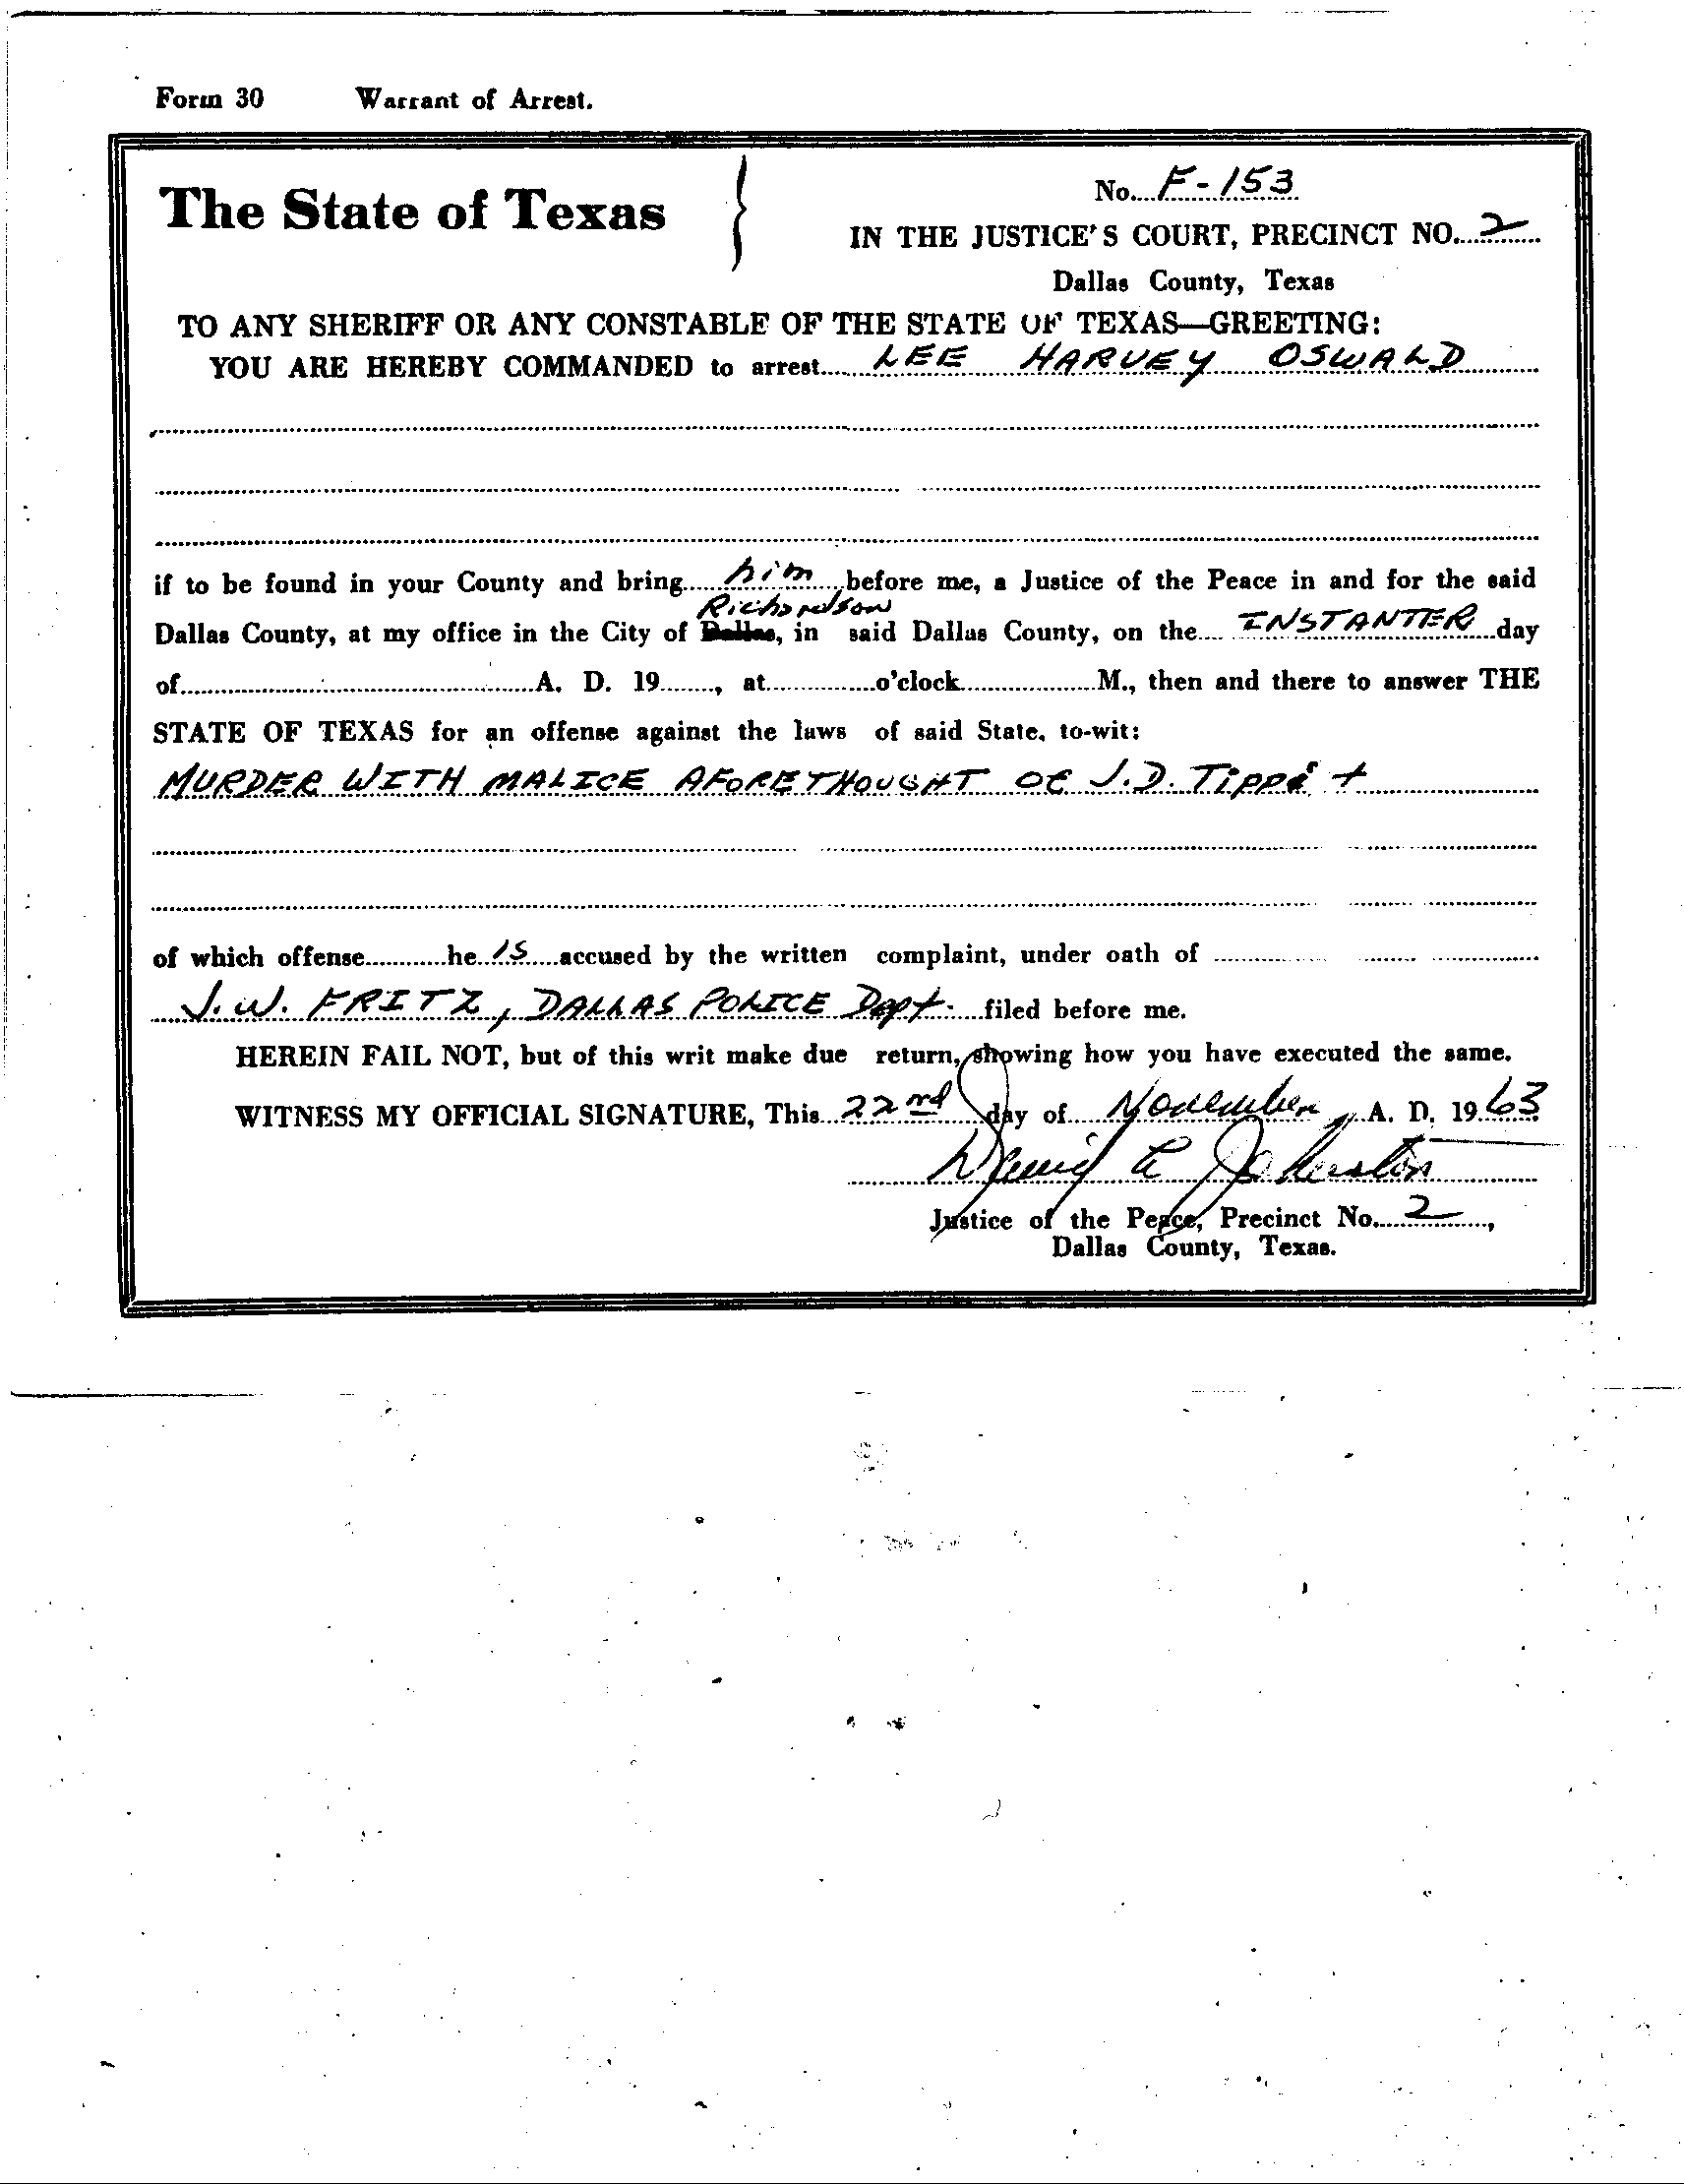 Form 30 Warrant of Arrest.
The State of Texas
No. F-153
IN THE JUSTICE'S COURT, PRECINCT NO. 2
Dallas County, Texas
TO ANY SHERIFF OR ANY CONSTABLE OF THE STATE OF TEXAS—GREETING:
YOU ARE HEREBY COMMANDED to arrest LEE HARVEY OSWALD
if to be found in your County and bring him before me, a Justice of the Peace in and for the said
Richardson
Dallas County, at my office in the City of Dallas, in said Dallas County, on the INSTANTER day
of A. D. 19, at o'clock M., then and there to answer THE
STATE OF TEXAS for an offense against the laws of said State, to-wit:
MURDER WITH MALICE AFORETHOUGHT OF J.D. Tippit
of which offense he IS accused by the written complaint, under oath of
J.W. FRITZ, DALLAS POLICE Dept. filed before me.
HEREIN FAIL NOT, but of this writ make due return, showing how you have executed the same.
WITNESS MY OFFICIAL SIGNATURE, This 22nd day of November, A. D. 1963
David L Johnston
Justice of the Peace, Precinct No. 2,
Dallas County, Texas.